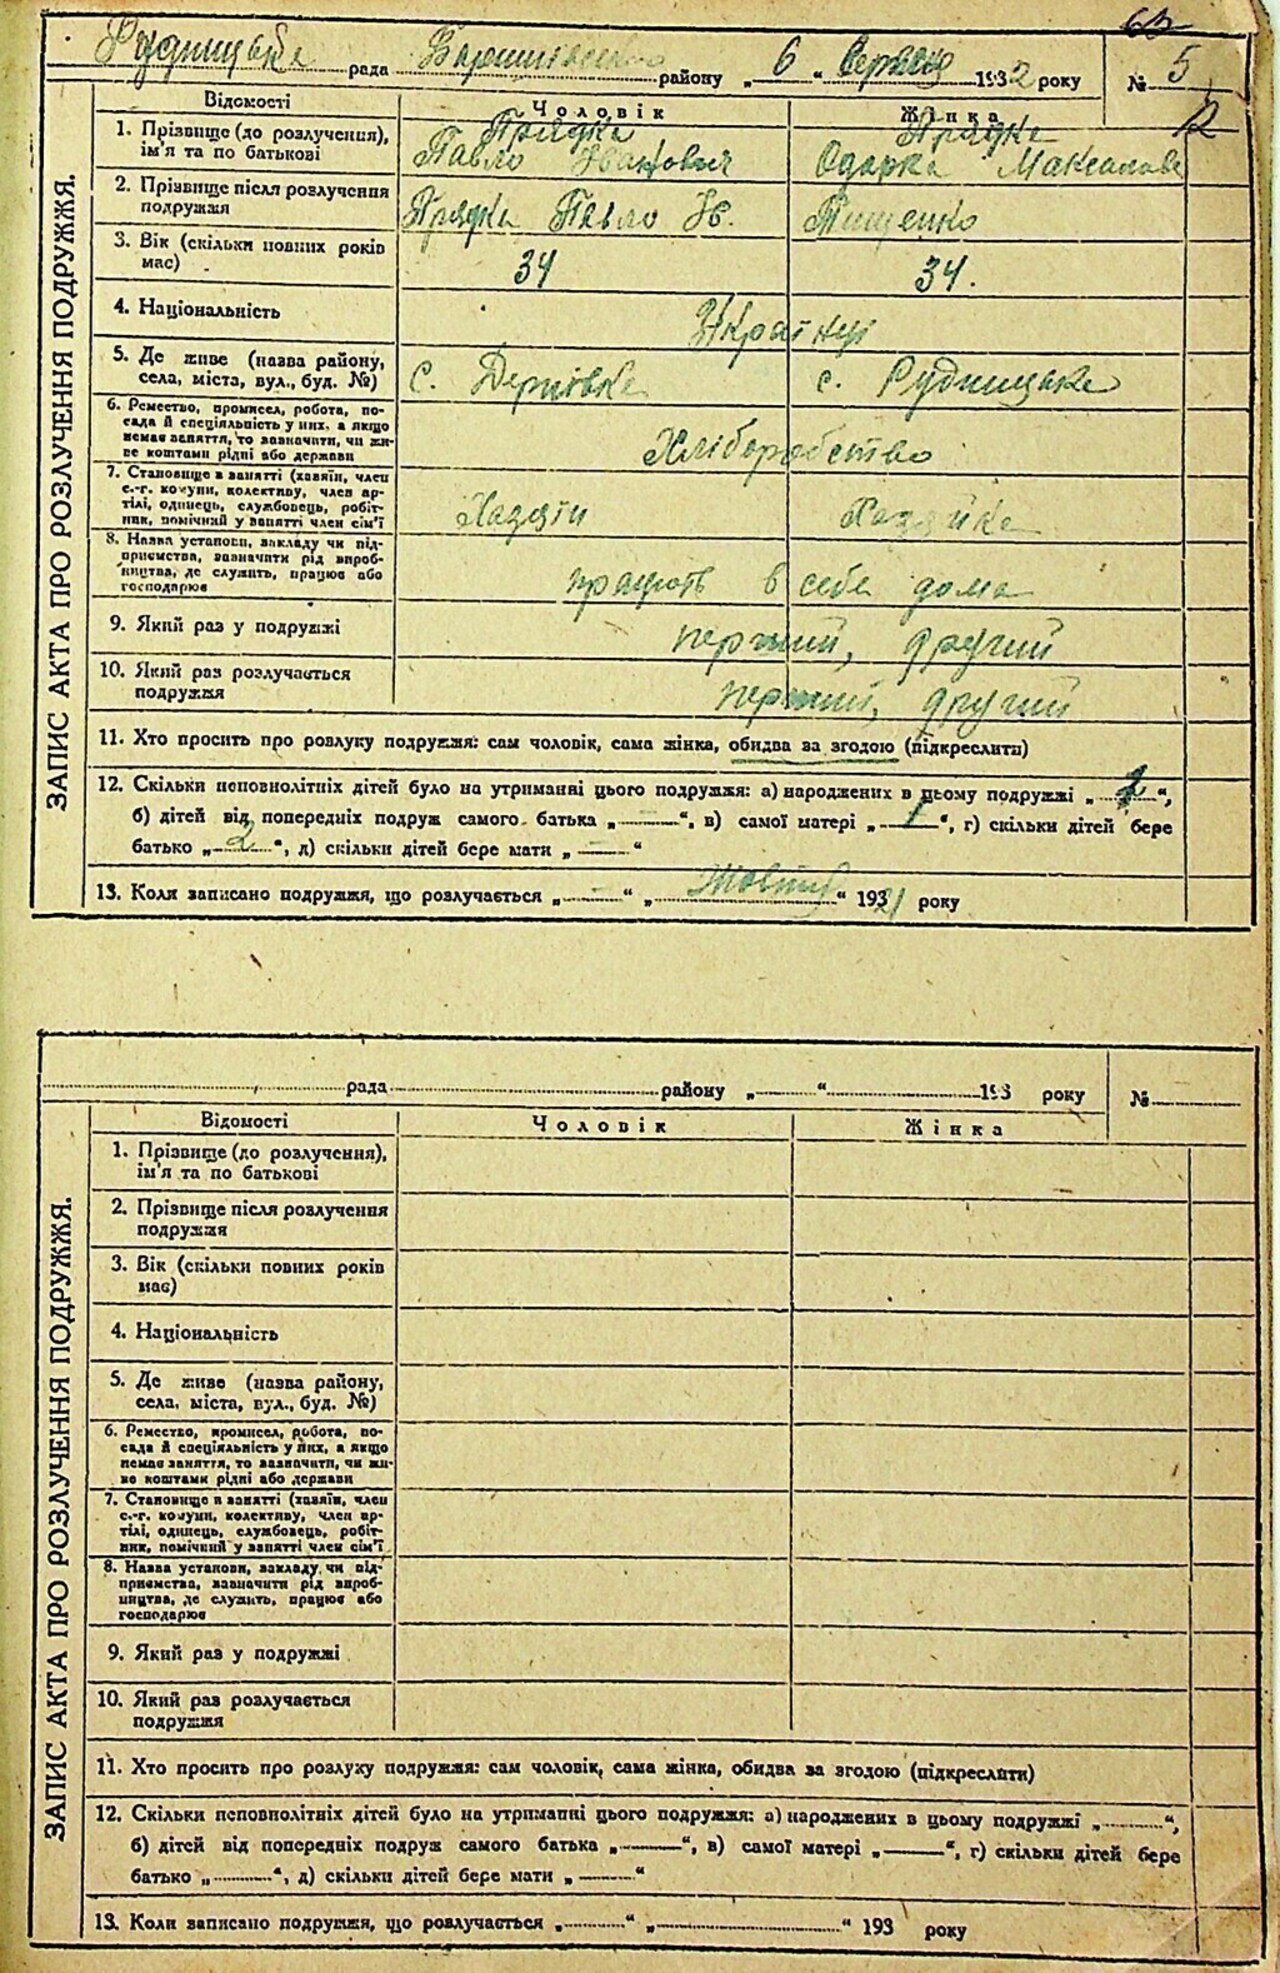 63
Рудницька рада Баришівського району „ 6 “ Серпня 1932 року № 5
12
ЗАПИС АКТА ПРО РОЗЛУЧЕННЯ ПОДРУЖЖЯ.
Відомості Чоловік Жінка
1. Прізвище (до розлучення), ім'я та по батькові
Прядка Павло Іванович
Прядка Одарка Максимовна
2. Прізвище після розлучення подружжя
Прядка Павло Ів. Тищенко
3. Вік (скільки повних років має)
34 34.
4. Національність
Українці
5. Де живе (назва району, села, міста, вул., буд. №)
с. Дернівка с. Рудницьке
6. Ремество, промисел, робота, по-
сада й спеціяльність у них, а якщо
немає заняття, то зазначити, чи жи-
ве коштами рідні або держави
Хліборобство
7. Становище в занятті (хазяїн, член
с.-г. комуни, колективу, член ар-
тілі, одинець, службовець, робіт-
ник, помічний у занятті член сім'ї
Хазяїн Хазяйка
8. Назва установи, закладу чи під-
приємства, зазначити рід вироб-
ництва, де служить, працює або
господарює
працють в себе дома
9. Який раз у подружжі
перший, другий
10. Який раз розлучається
подружжя
перший, другий
11. Хто просить про розлуку подружжя: сам чоловік, сама жінка, обидва за згодою (підкреслити)
12. Скільки неповнолітніх дітей було на утриманні цього подружжя: а) народжених в цьому подружжі „ 2 “,
б) дітей від попередніх подруж самого батька „ — “, в) самої матері „ 1 “, г) скільки дітей бере
батько „ 2 “, д) скільки дітей бере мати „ — “
13. Коли записано подружжя, що розлучається „ — “ „ Жовтня “ 193 21 року
рада району „ “ 193 року №
ЗАПИС АКТА ПРО РОЗЛУЧЕННЯ ПОДРУЖЖЯ.
Відомості Чоловік Жінка
1. Прізвище (до розлучення),
ім'я та по батькові
2. Прізвище після розлучення
подружжя
3. Вік (скільки повних років
має)
4. Національність
5. Де живе (назва району,
села, міста, вул., буд. №)
6. Ремество, промисел, робота, по-
сада й спеціяльність у них, а якщо
немає заняття, то зазначити, чи жи-
ве коштами рідні або держави
7. Становище в занятті (хазяїн, член
с.-г. комуни, колективу, член ар-
тілі, одинець, службовець, робіт-
ник, помічний у занятті член сім'ї
8. Назва установи, закладу чи під-
приємства, зазначити рід вироб-
ництва, де служить, працює або
господарює
9. Який раз у подружжі
10. Який раз розлучається
подружжя
11. Хто просить про розлуку подружжя: сам чоловік, сама жінка, обидва за згодою (підкреслити)
12. Скільки неповнолітніх дітей було на утриманні цього подружжя: а) народжених в цьому подружжі „ “,
б) дітей від попередніх подруж самого батька „ “, в) самої матері „ “, г) скільки дітей бере
батько „ “, д) скільки дітей бере мати „ “
13. Коли записано подружжя, що розлучається „ “ „ “ 193 року